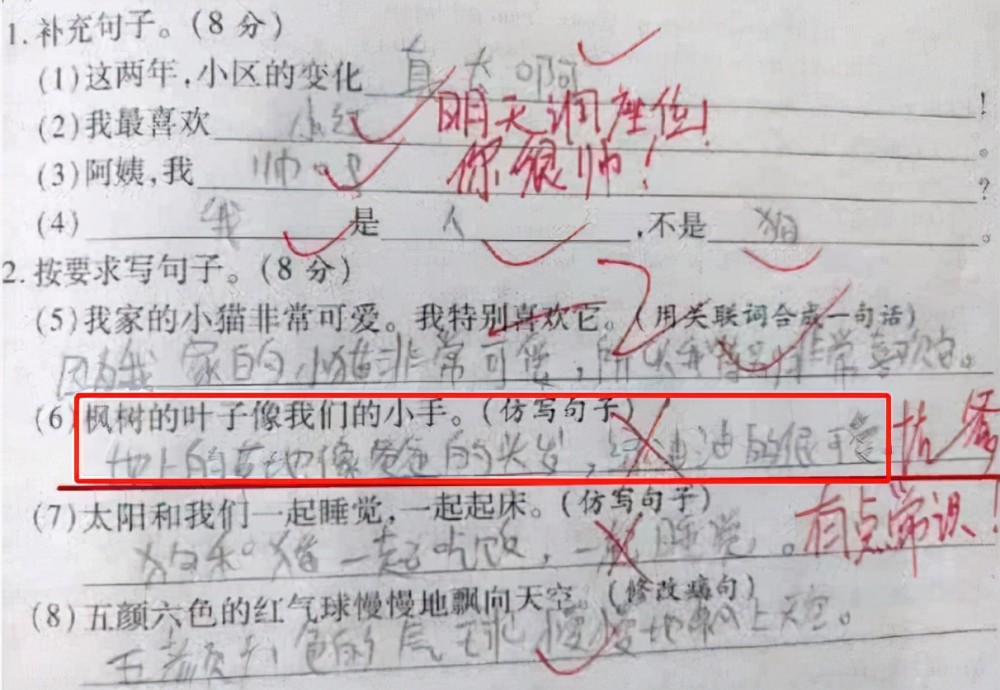 1.补充句子。(8分)
(1)这两年,小区的变化 真大啊 !
(2)我最喜欢 。
明天调座位!
(3)阿姨,我 帅吗 ?
你很帅!
(4) 我 是 人 ,不是 狗 。
2.按要求写句子。(8分)
(5)我家的小猫非常可爱。我特别喜欢它。(用关联词合成一句话)
因为我家的小猫非常可爱,所以我特别非常喜欢它。
(6)枫树的叶子像我们的小手。(仿写句子)
地上的草地像爸爸的头发,绿油油的很可爱
有点常识!
(7)太阳和我们一起睡觉,一起起床。(仿写句子)
狗和猫一起吃饭,一起睡觉。
(8)五颜六色的红气球慢慢地飘向天空。(修改病句)
五颜六色的气球慢慢地飘上天空。